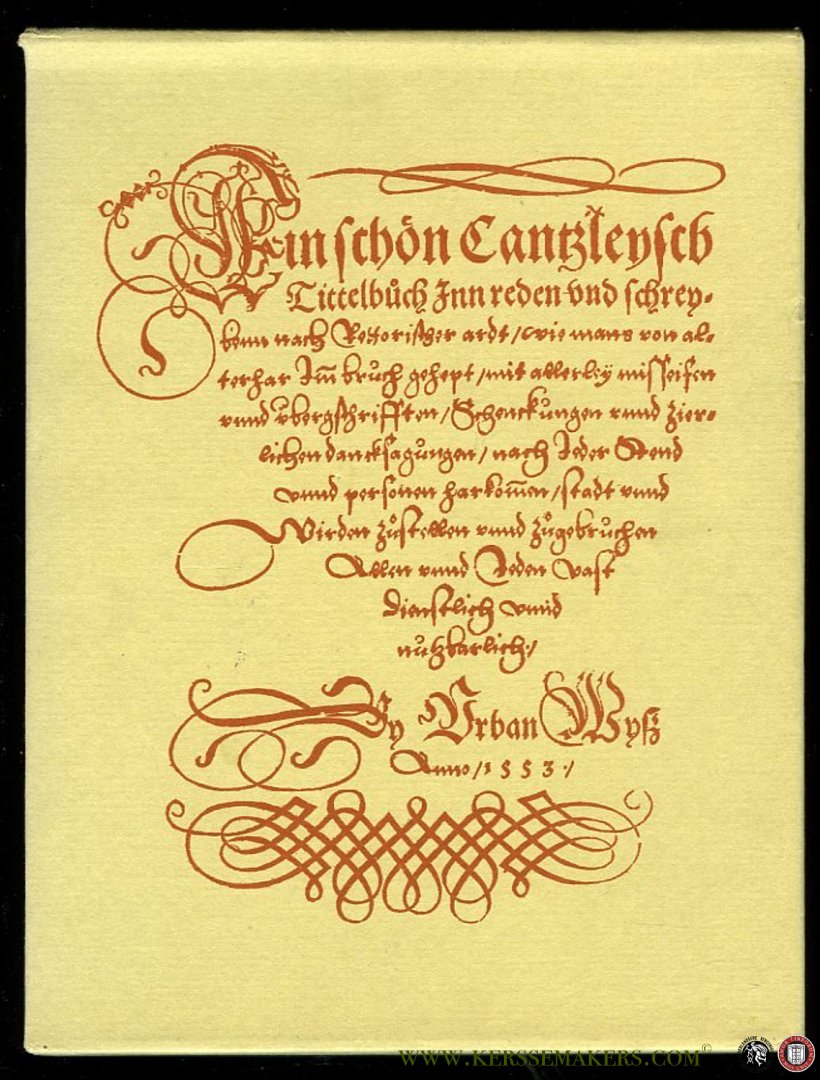 Ein schön Cantzleysch
Tittelbůch Inn reden vnd schrey-
benn nach Rettorischer ardt / wie mans von al-
terhar Im̄ brůch gehept / mit allerley missifen
vnnd v̊bergschrifften / Schenckůngen vnnd zier-
lichen dancksagůngen / nach Jeder Stend
vnnd personen harkom̄en / stadt vnnd
Wirden zůstellen vnnd zůgebrůchen
Allen vnnd Jeden vast
dienstlich vnnd
nutzbarlich /
By Vrban Wyß
Anno / 1553 /
WWW.KERSSEMAKERS.COM©